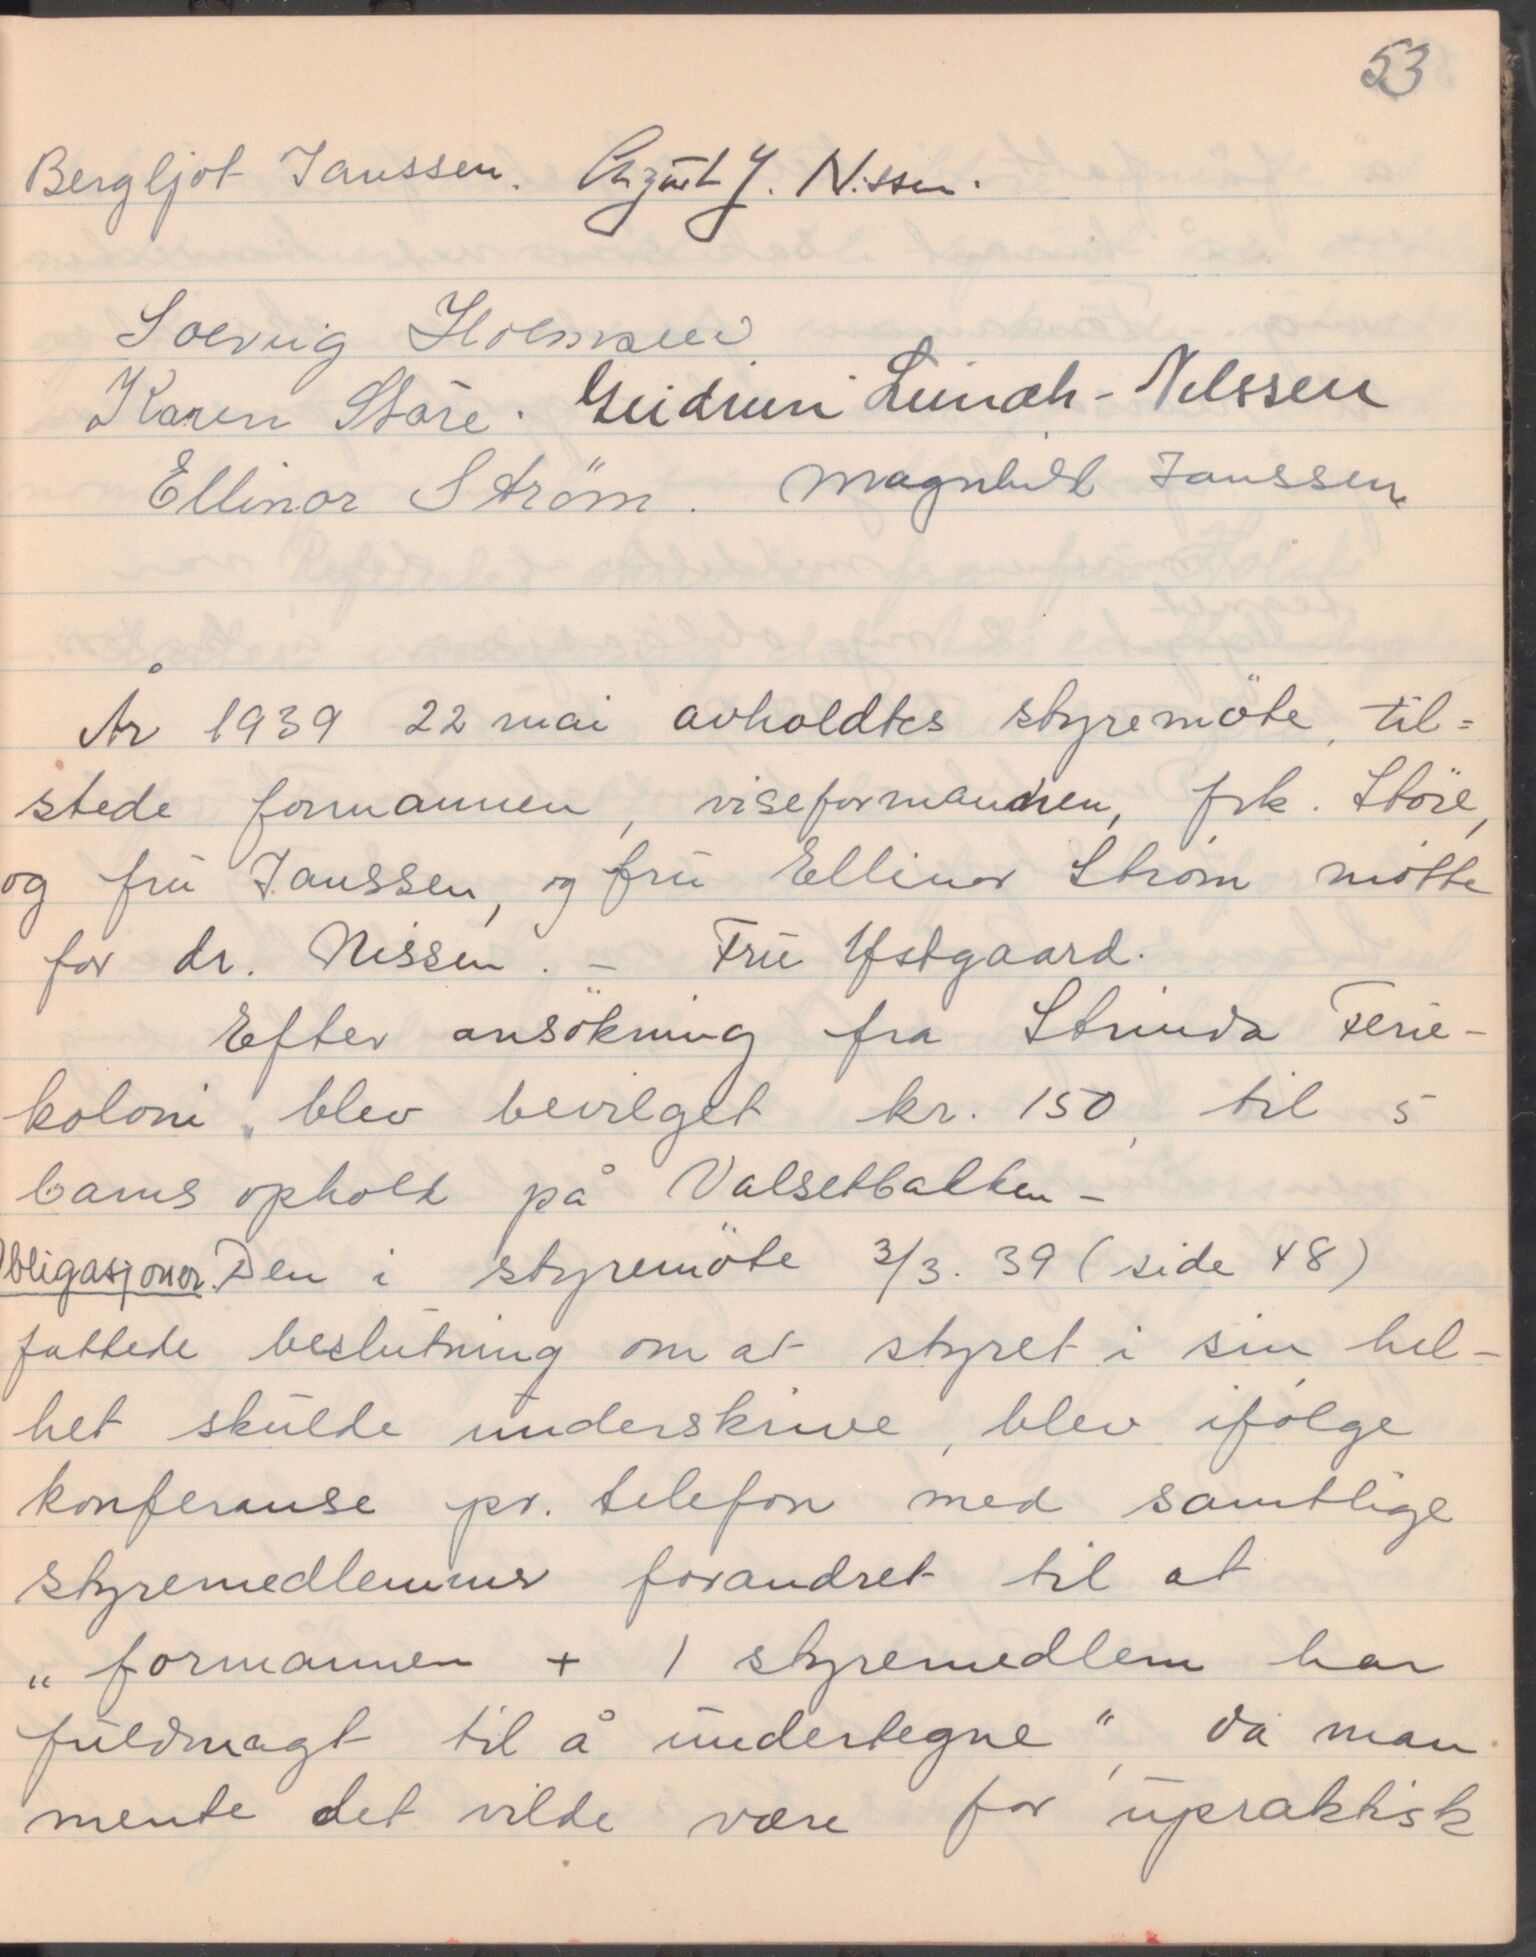 53
Bergljot Janssen. August J. Nissen.
Solveig Holmsen
Karen Störe. Gudrun Lunds-Nilssen
Ellinor Ström. Magnhild Janssen
År 1939 22 mai avholdtes styremöte, til=
stede formannen, viseformannen, frk. Störe,
og frü Janssen, og frü Ellinor Ström mötte
for dr. Nissen. – Frü Ystgaard.
Efter ansökning fra Strinda Ferie-
koloni, blev bevilget kr. 150, til 5
barns ophold på Valsetbakken –
Obligasjoner. Den i styremöte 3/3. 39 (side 48)
fattede beslutning om at styret i sin hel-
het skulde underskrive, blev ifölge
konferanse pr. telefon med samtlige
styremedlemmer forandret til at
„formannen + 1 styremedlem har
fuldmagt til å undertegne“, da man
mente det vilde være for upraktisk